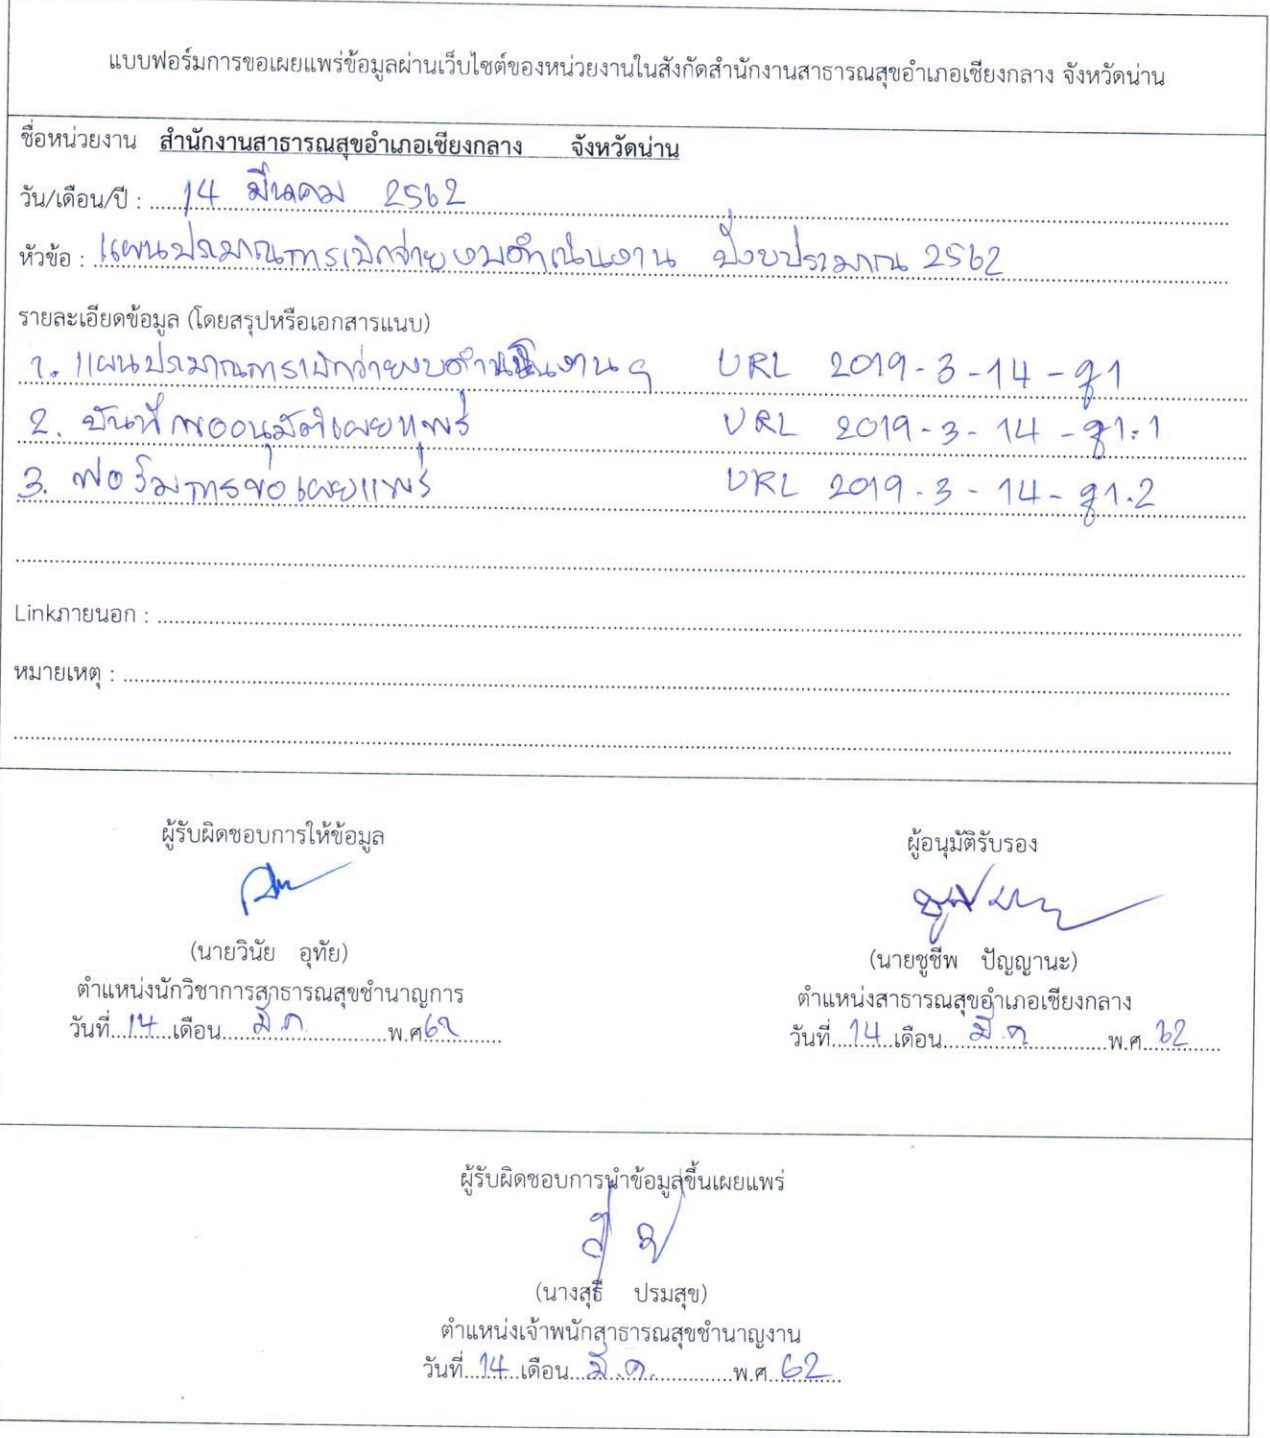 แบบฟอร์มการขอเผยแพร่ข้อมูลผ่านเว็บไซต์ของหน่วยงานในสังกัดสำนักงานสาธารณสุขอำเภอเชียงกลาง จังหวัดน่าน
ชื่อหน่วยงาน สำนักงานสาธารณสุขอำเภอเชียงกลาง จังหวัดน่าน
วัน/เดือน/ปี : 14 มีนาคม 2562
หัวข้อ : แผนประมาณการเบิกจ่ายงบดำเนินงาน ปีงบประมาณ 2562
รายละเอียดข้อมูล (โดยสรุปหรือเอกสารแนบ)
1. แผนประมาณการเบิกจ่ายงบดำเนินงานฯ URL 2019-3-14-ฐ1
2. บันทึกขออนุมัติเผยแพร่ URL 2019-3-14-ฐ1.1
3. ฟอร์มการขอเผยแพร่ URL 2019-3-14-ฐ1.2
Linkภายนอก :
หมายเหตุ :
ผู้รับผิดชอบการให้ข้อมูล
ผู้อนุมัติรับรอง
(นายวินัย อุทัย)
(นายชูชีพ ปัญญานะ)
ตำแหน่งนักวิชาการสาธารณสุขชำนาญการ
ตำแหน่งสาธารณสุขอำเภอเชียงกลาง
วันที่ 14 เดือน มี.ค. พ.ศ 62
วันที่ 14 เดือน มี.ค พ.ศ. 62
ผู้รับผิดชอบการนำข้อมูลขึ้นเผยแพร่
(นางสุธี ปรมสุข)
ตำแหน่งเจ้าพนักสาธารณสุขชำนาญงาน
วันที่ 14 เดือน มี.ค. พ.ศ. 62